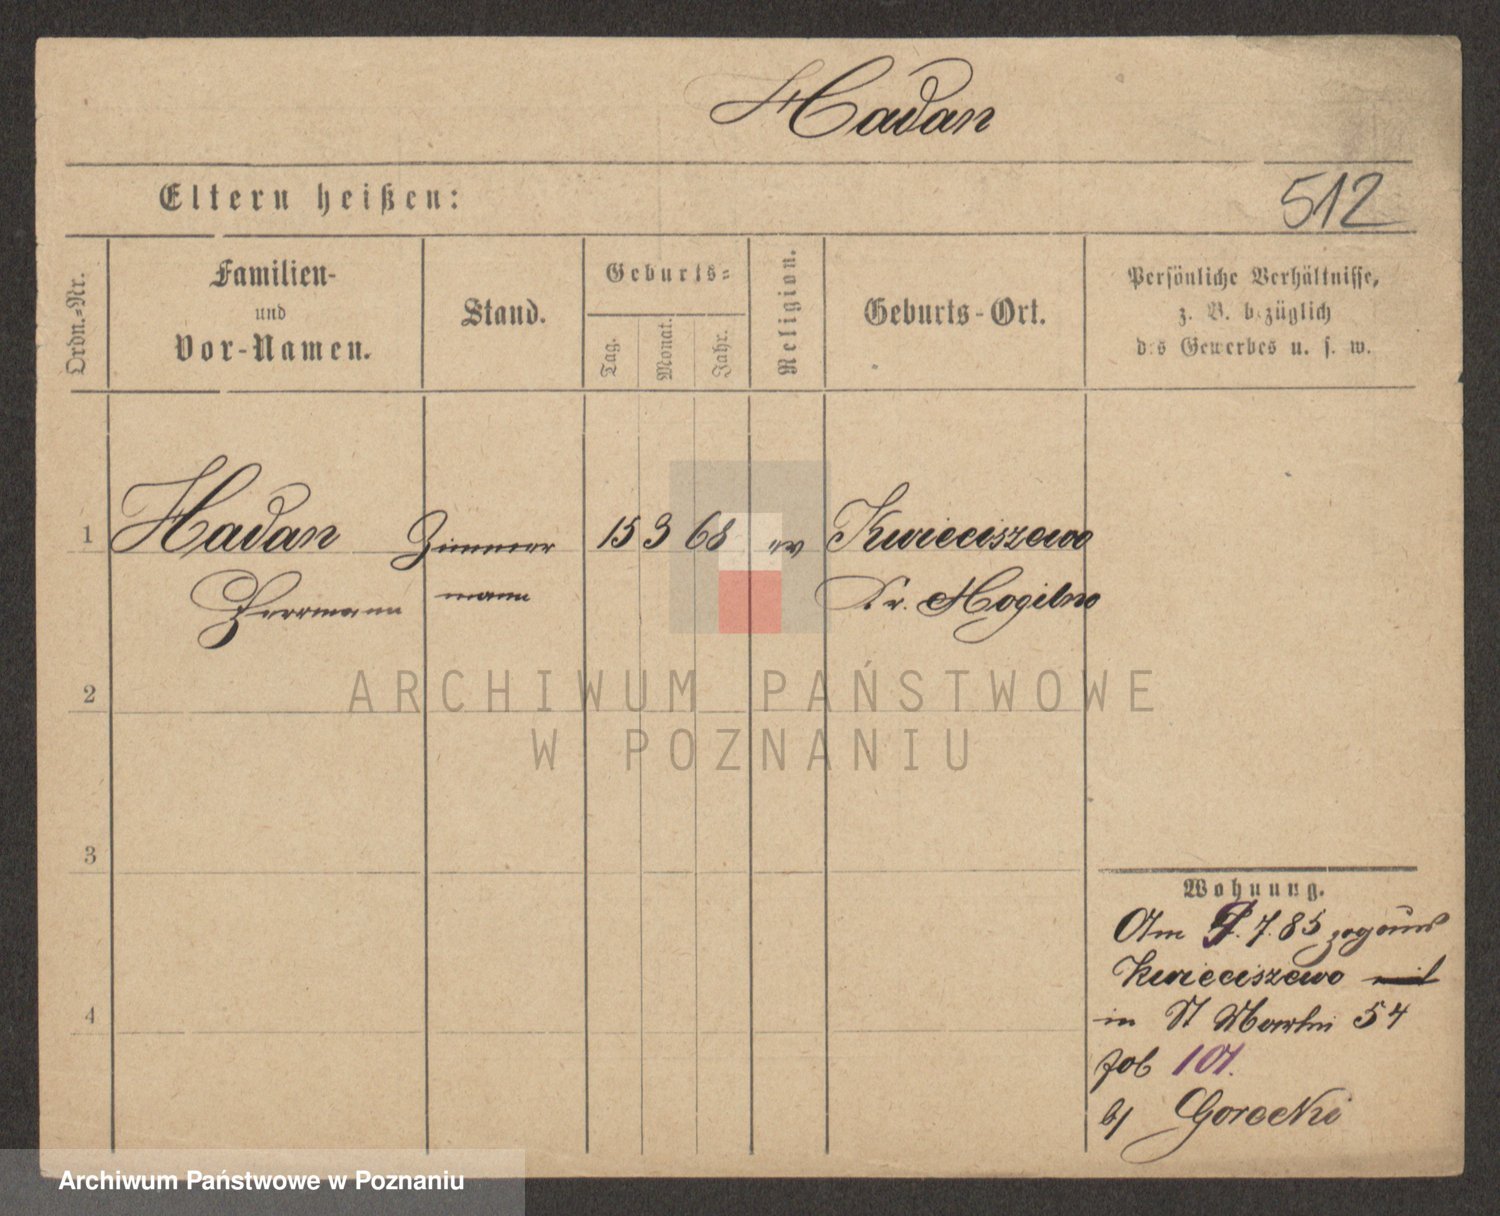 Hadan
512
Eltern heißen:
Ordn.-Nr.
Familien-
und
Vor-Namen.
Stand.
Geburts-
Tag.
Monat.
Jahr.
Religion.
Geburts-Ort.
Persönliche Verhältnisse,
z. B. bezüglich
des Gewerbes u. s. w.
1 Hadan Zimmer 15 3 68 ev Kwieciszewo
Herrmann mann Kr. Mogilno
2
3
4
Wohnung.
Am 7. 85
Kwieciszewo
in St Martin 54
b/ Gorecki
ARCHIWUM PAŃSTWOWE
W POZNANIU
Archiwum Państwowe w Poznaniu